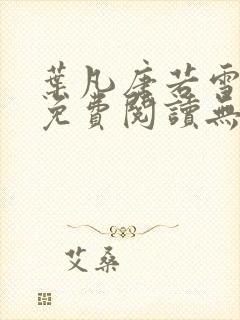 葉凡唐若雪
免費閱讀無
艾桑